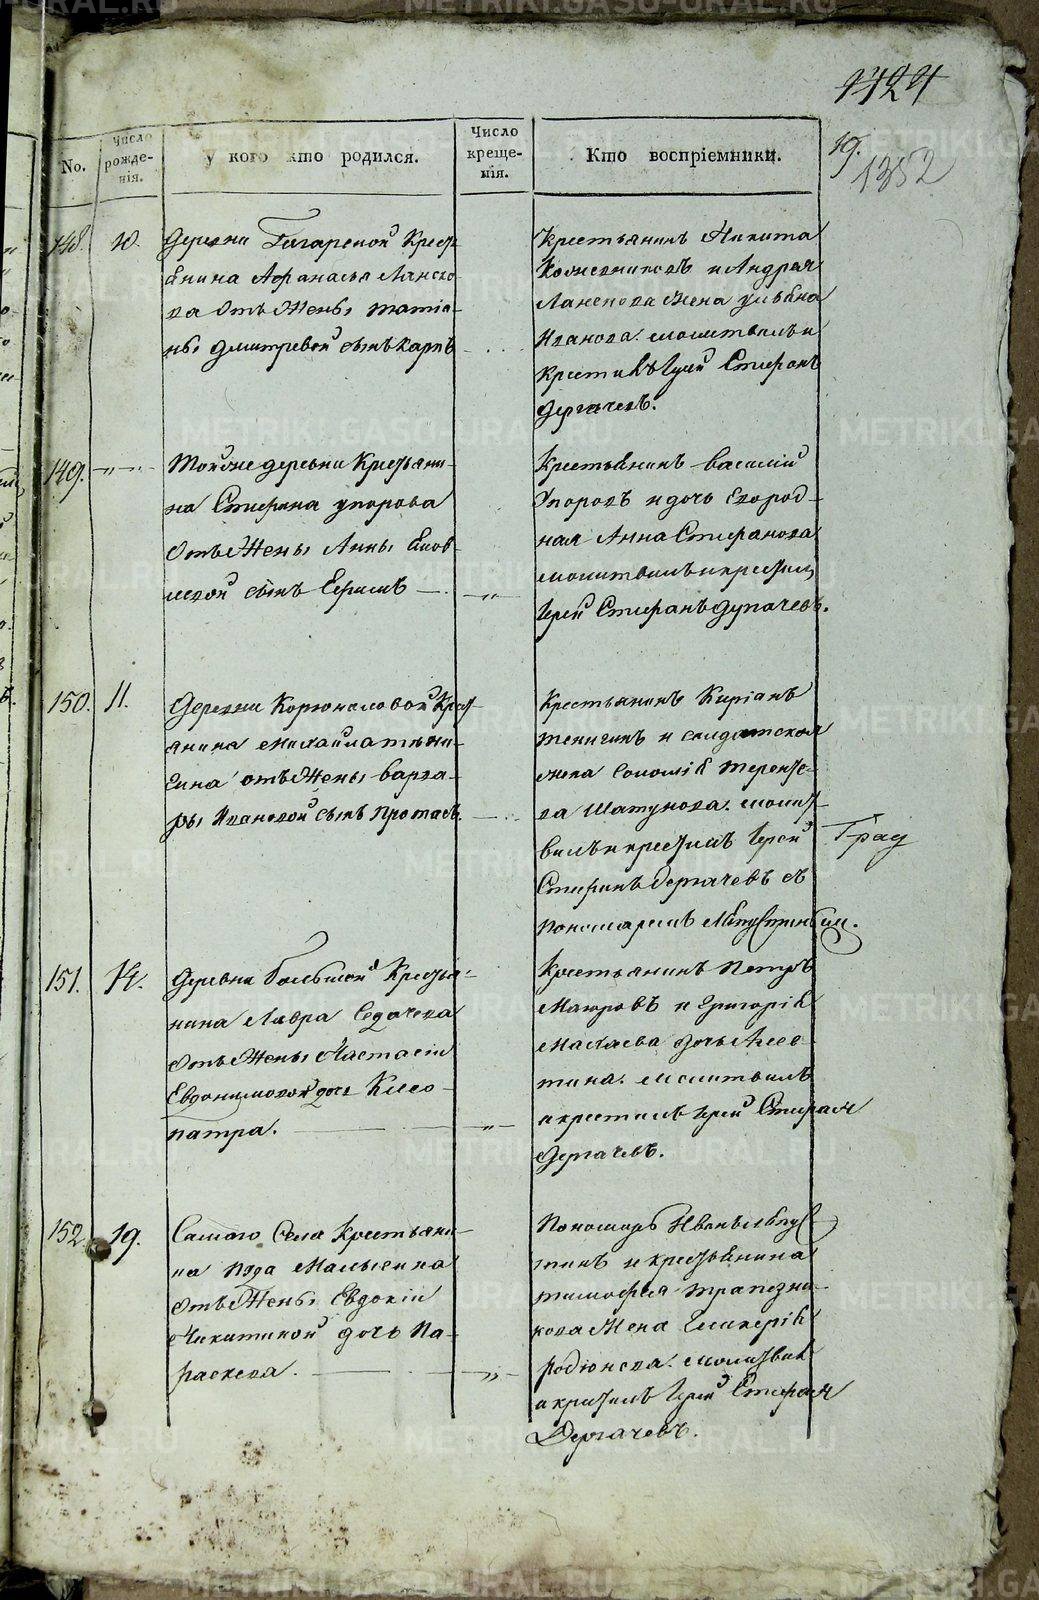 1424
19.
1352
No.
Число рожденія.
у кого кто родился.
Число крещенія.
Кто воспріемники.
148.
10.
деревни Гагарской Крест
янина Афанасья Ланско
ва отъ Жены татія-
ны дмитревой сынъ Карпъ
Крестьянинъ Никита
Кожевниковъ и Андрея
Жена ульяна
Иванова. молитвилъ и
крестилъ Іерей Стефанъ
дергачевъ.
149.
тойже деревни Крестьяни-
на Стефана упорова
отъ Жены Анны Яков-
левой сынъ Ефимъ
Крестьянинъ василій
Упоровъ и дочь Евород-
ная Анна Стефанова
молитвилъ и крестил
Іерей Стефанъ дергачевъ.
150.
11.
деревни Корюкаловой Крест
янина михайла
отъ Жены варва-
ры Ивановой сынъ протасъ.
Крестьянинъ Киріанъ
и салдатская
жена соломія терентье-
ва Шатунова. молит-
вилъ и крестилъ Іерей
Стефанъ дергачевъ съ
пономаремъ
Град
151.
14.
деревни Большой Крестья-
нина Лавра Седачева
отъ Жены Настасіи
Евдокимовой дочь Клео-
патра.
Крестьянинъ Петръ
и Григорія
дочь
тина. молитвилъ
и крестилъ Іерей Стефан
дергачевъ.
152
19.
Самаго Села Крестьяни-
на
отъ Жены Евдокіи
Никитиной дочь Па-
раскева.
Пономарь Иванъ
тинъ и крестьянина
тимофея трапезни-
кова Жена Гликерія
родіонова. молитвил
и крестилъ Іерей Стефан
Дергачевъ.
METRIKI.GASU-URAL.RU